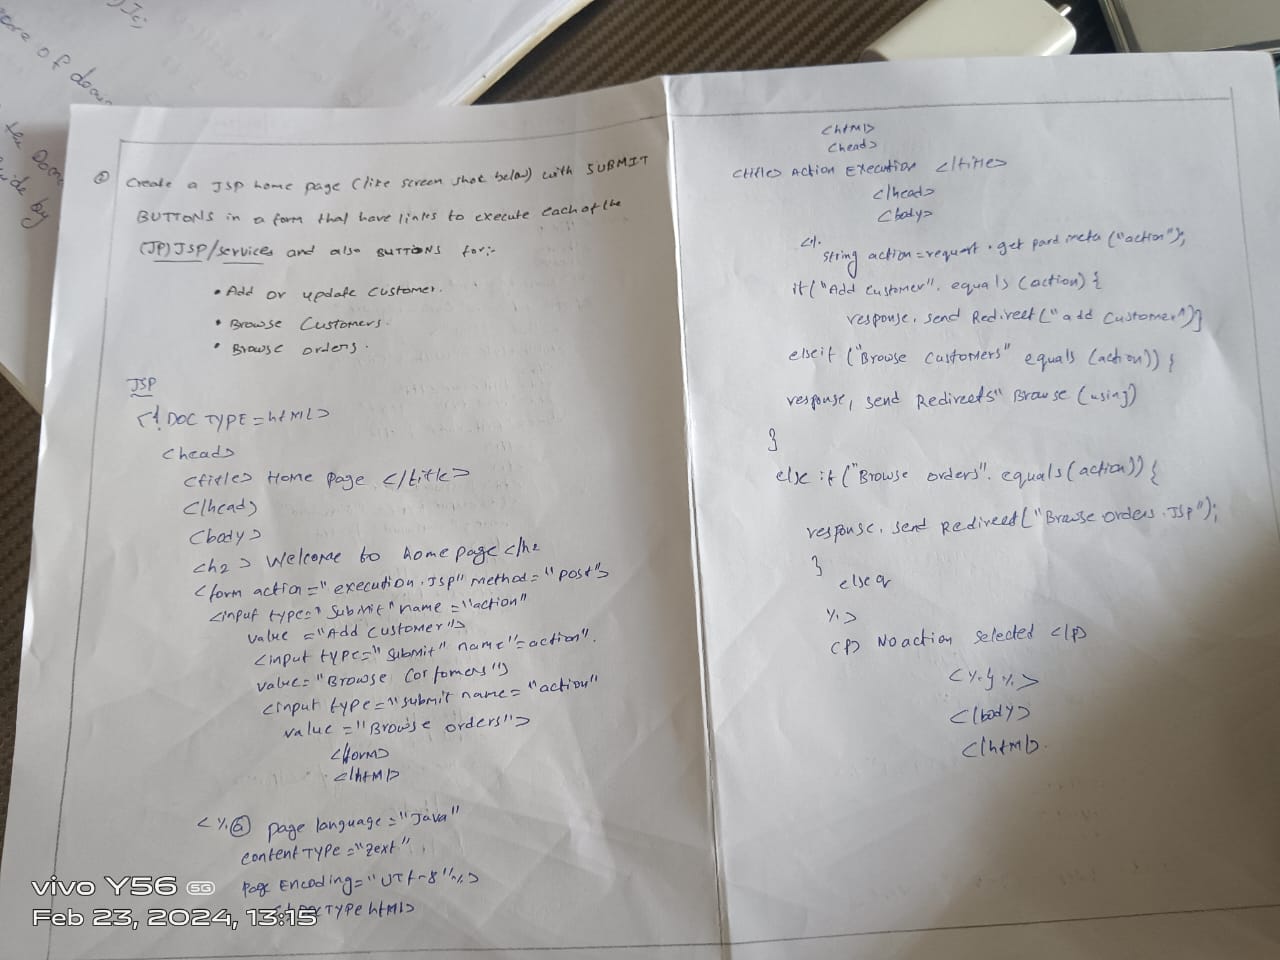 Jsj
ore of
the
de by
② Create a JSP home page (like screen shot below) with SUBMIT
BUTTONS in a form that have links to execute each of the
(JP) JSP/services and also BUTTONS for:-
• Add or update customer.
• Browse Customers.
• Browse orders.
JSP
<! DOC TYPE = html>
<head>
<title> Home Page </title>
</head>
<body>
<h2> Welcome to home page </h2
<form action=" execution.JSP" Method="post">
<input type=" Submit" name ="action"
value ="Add Customer">
<input type="submit" name"=action".
value="Browse Cortomers">
<input type="submit name="action"
value ="Browse orders">
</form>
</html>
<%@ page language="Java"
content TYPE="zext"
page Encoding="UTF-8"%>
TYPE html>
<html>
<head>
<title> Action Execution </title>
</head>
<body>
<%
string action=request.get pard meta ("action");
if("Add customer". equals (action) {
response. send Redirect("add Customer")}
else if ("Browse customers" equals (action)) {
response, send Redireets" Browse (using)
}
else if ("Browse orders". equals (action)) {
response. send Redireet ("Browse orders.JSP");
}
else
%>
<P> No action selected </P>
<%}%>
</body>
</html>.
vivo Y56 5G
Feb 23, 2024, 13:15